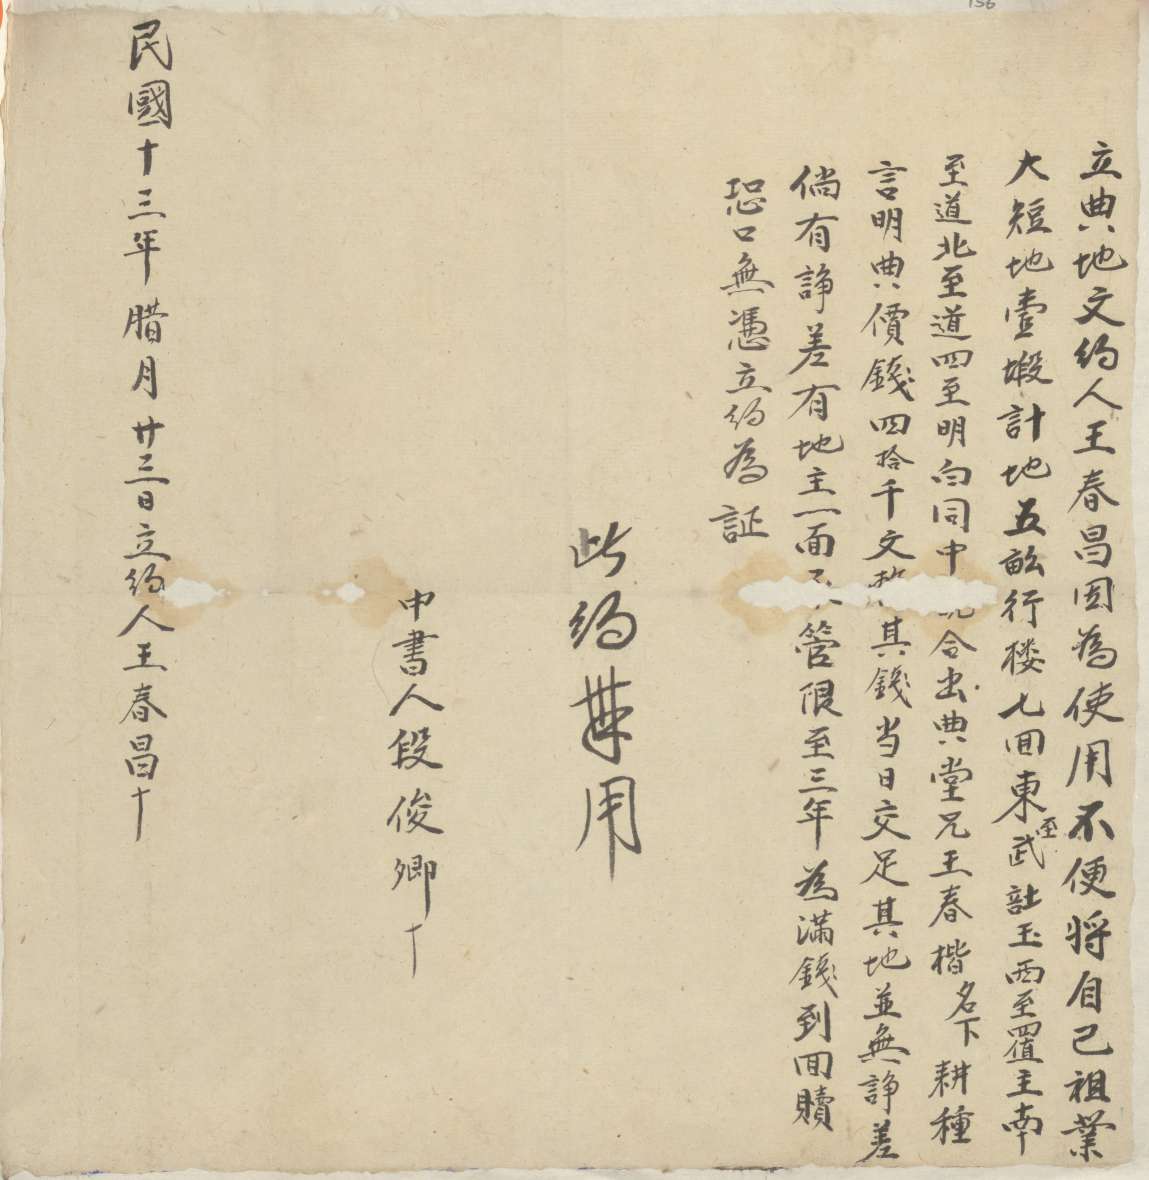 立典地文约人王春昌因為使用不便将自己祖業
大短地壹塅計地五畝行楼七囬東至武註玉西至置主南
至道北至道四至明白同中説合出典堂兄王春楷名下耕種
言明典價錢四拾千文整其錢当日交足其地並無諍差
倘有諍差有地主一面不管限至三年為满錢到囬贖
恐口無憑立约為証
此约無用
中書人段俊卿十
民國十三年腊月廿三日立约人王春昌十
156